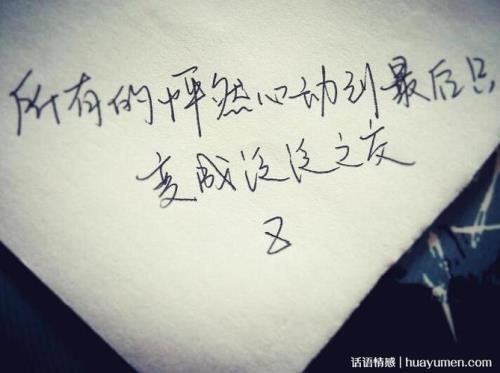 所有的怦然心动到最后只
变成泛泛之交
话语情感 | huayumen.com